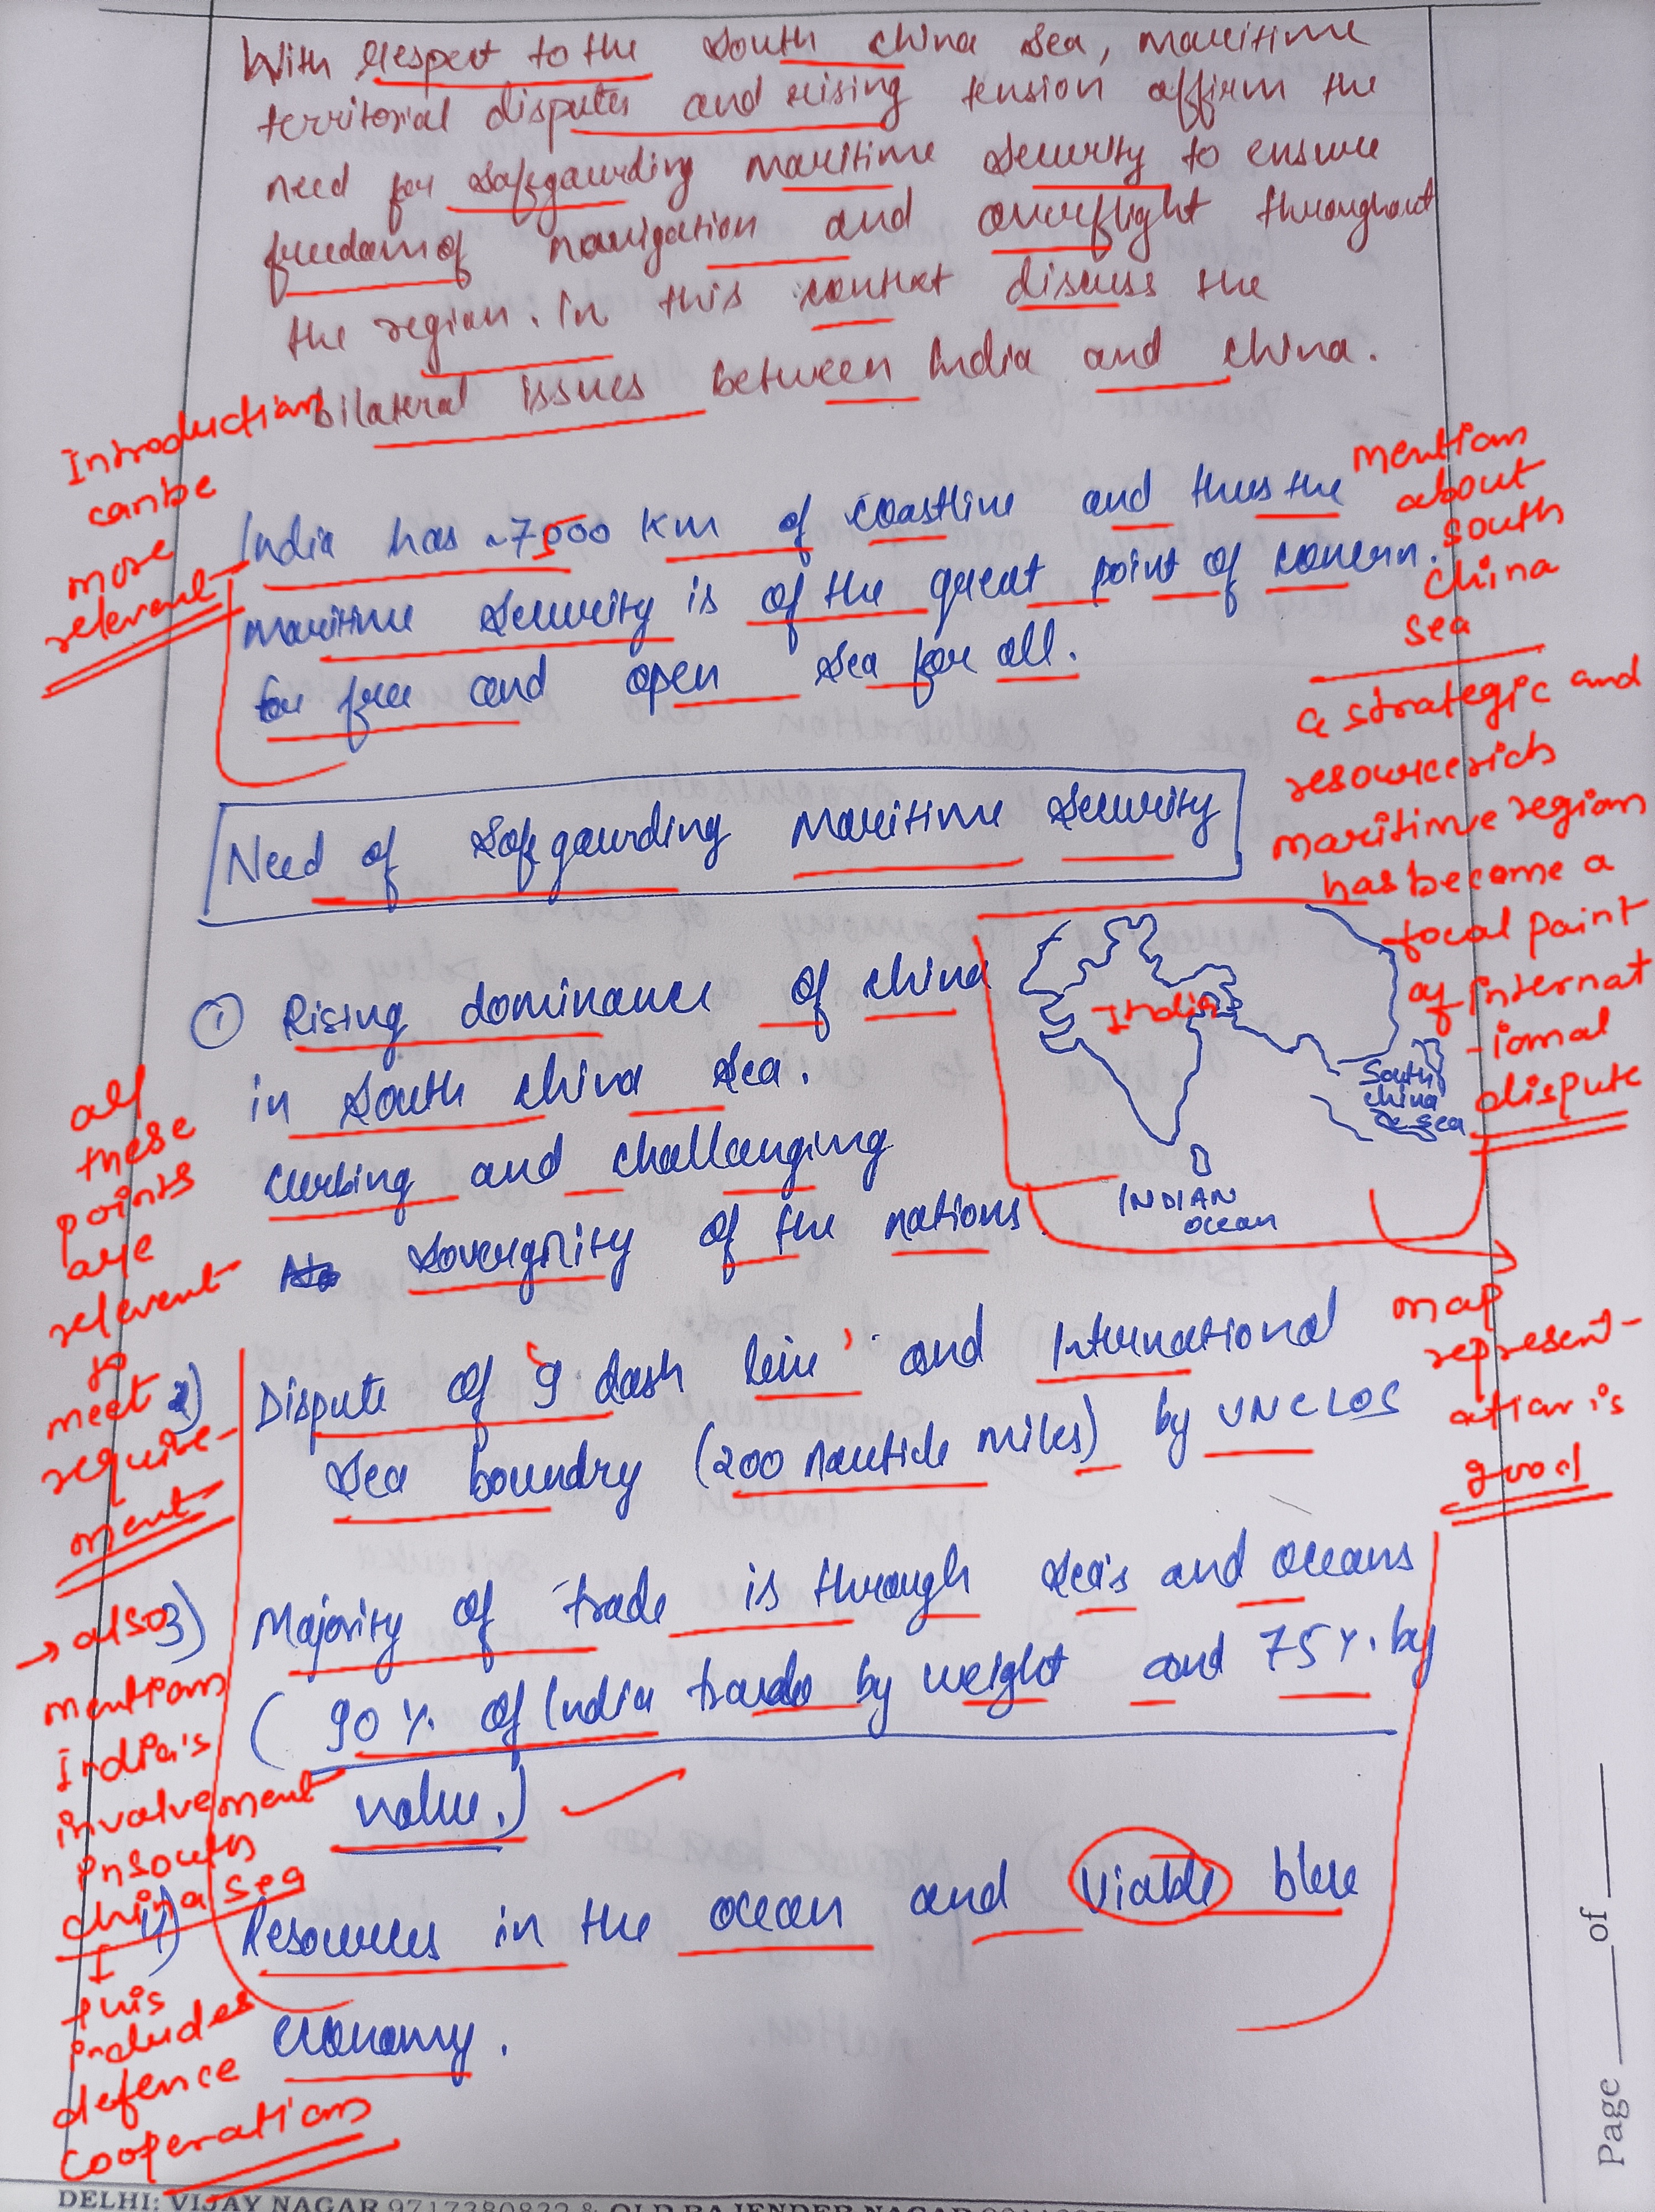 With Respect to the South China Sea, maritime
territorial disputes and rising tension affirm the
need for safegaurding maritime security to ensure
freedom of navigation and overflight throughout
the region. In this context discuss the
bilateral issues between India and China.
Introduction
can be
more
relevant
India has ~7500 Km of coastline and thus the
maritime security is of the great point of concern.
for free and open sea for all.
mention
about
south
china
sea
a strategic and
resource rich
maritime region
has become a
focal point
of internat
-ional
dispute
Need of Safegaurding Maritime Security
India
South
China
Sea
INDIAN
Ocean
map
represent-
ation is
good
① Rising dominance of China
in South China Sea.
Curbing and challanging
sovergnity of the nations
all
these
points
are
relevent
to
meet
require-
ment
2) Dispute of '9 dash line' and International
Sea boundry (200 nautide miles) by UNCLOS
3) Majority of trade is through sea's and oceans
(90 %. of India trade by weight and 75 %. by
value.)
→ also
mention
India's
involvement
in south
china sea
↓
this
includes
defence
cooperation
4) Resources in the ocean and viable blue
economy.
Page ____ of ____
DELHI: VIJAY NAGAR 9717380832 & OLD RAJENDER NAGAR